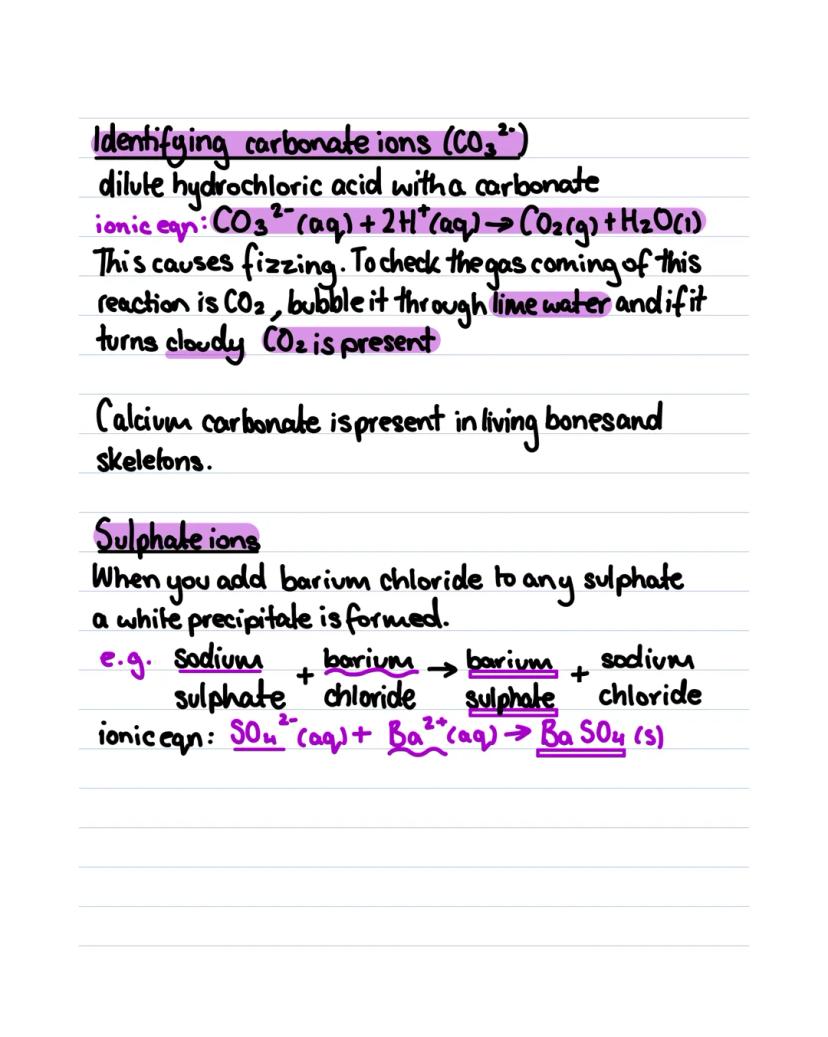 Identifying carbonate ions (CO₃²⁻)
dilute hydrochloric acid with a carbonate
ionic eqn: CO₃²⁻ (aq) + 2H⁺ (aq) → CO₂(g) + H₂O(l)
This causes fizzing. To check the gas coming of this
reaction is CO₂, bubble it through lime water and if it
turns cloudy CO₂ is present
Calcium carbonate is present in living bones and
skeletons.
Sulphate ions
When you add barium chloride to any sulphate
a white precipitate is formed.
e.g. sodium + barium → barium + sodium
sulphate chloride sulphate chloride
ionic eqn: SO₄²⁻ (aq) + Ba²⁺ (aq) → BaSO₄ (s)